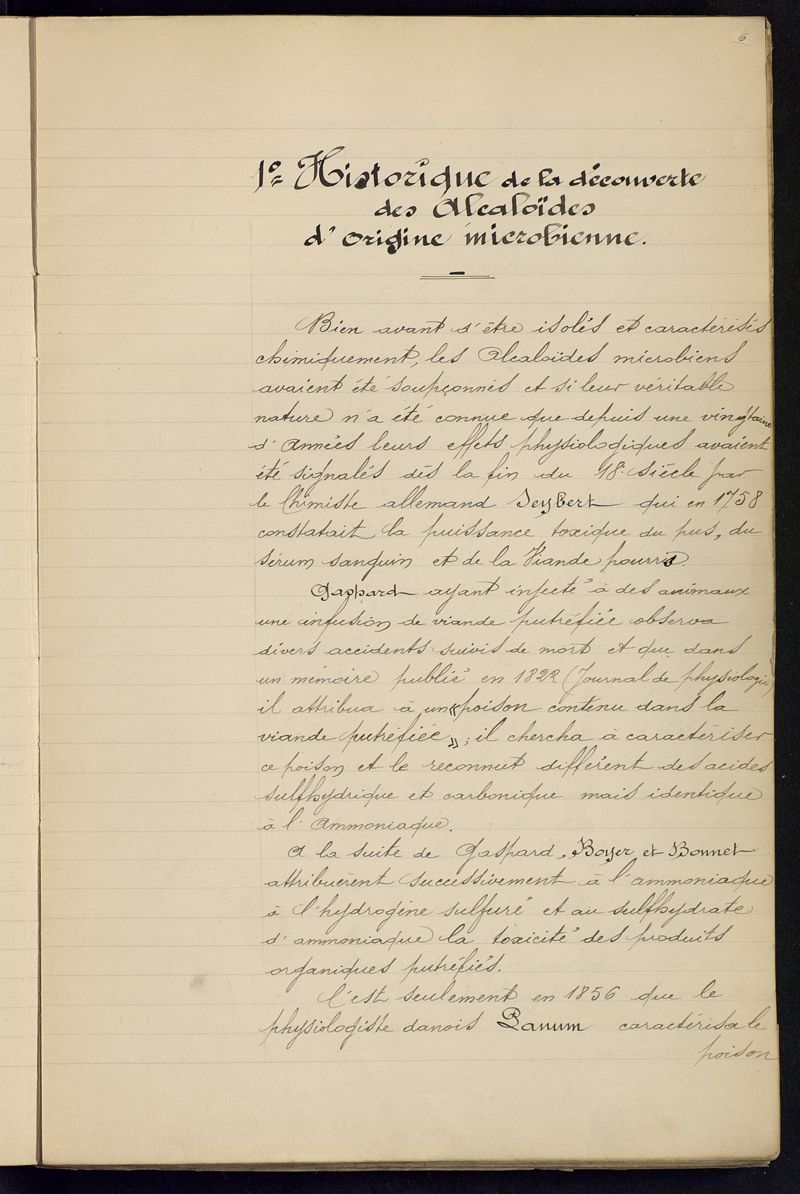 6
1º Historique de la découverte
des Alcaloïdes
d'origine microbienne.
Bien avant d'être isolés et caractérisés
chimiquement, les Alcaloïdes microbiens
avaient été soupçonnés et si leur véritable
nature n'a été connue que depuis une vingtaine
d'Années leurs effets physiologiques avaient
été signalés dès la fin du 18e siècle par
le Chimiste allemand Seybert qui en 1758
constatait la puissance toxique du pus, du
sérum sanguin et de la Viande pourris.
Gaspard ayant injecté à des animaux
une infusion de viande putréfiée observa
divers accidents suivis de mort et que dans
un mémoire publié en 1822 (Journal de physiologie)
il attribua à un « poison contenu dans la
viande putréfiée » ; il chercha à caractériser
ce poison et le reconnut différent des acides
sulfhydrique et carbonique mais identique
à l'Ammoniaque.
A la suite de Gaspard, Boyer et Bonnet
attribuèrent successivement à l'ammoniaque
à l'hydrogène sulfuré et au sulfhydrate
d'ammoniaque la toxicité des produits
organiques putréfiés.
C'est seulement en 1856 que le
physiologiste danois Panum caractérisa le
poison